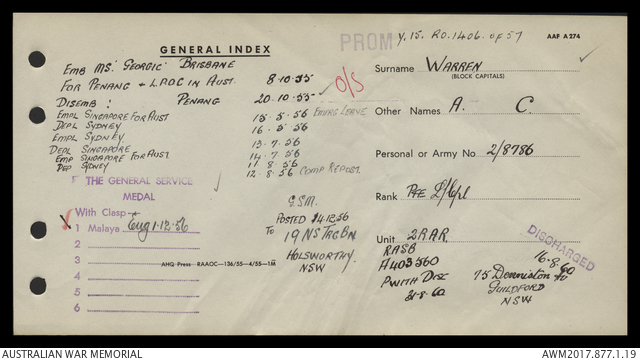 PROM Y. 15. RO. 1406. of 57
AAF A274
GENERAL INDEX
EMB MS. 'GEORGIC' BRISBANE
FOR PENANG + L.P.O.C IN AUST. 8-10-55
DISEMB: PENANG 20-10-55 O/S
EMPL SINGAPORE FOR AUST 15. 5. 56 EMERG LEAVE
DEPL SYDNEY 16. 5. 56
EMPL SYDNEY 13. 7. 56
DEPL SINGAPORE 14. 7. 56
EMP SINGAPORE FOR AUST. 11. 8. 56
DEP SYDNEY 12. 8. 56 COMP REPOST.
THE GENERAL SERVICE
MEDAL
With Clasp
1 Malaya Eng 1-12-56
2
3
4
5
6
G.S.M.
POSTED 24.12.56
TO 19 NS TRG BN
HOLSWORTHY.
NSW
AHQ Press RAAOC—136/55—4/55—1M
Surname WARREN
(BLOCK CAPITALS)
Other Names A. C.
Personal or Army No 2/8786
Rank PTE L/Cpl
Unit 2RAR
RASB
A403560
PWITH DISC
21-8-60
DISCHARGED
16-8-60
75 Denniston
GUILDFORD
NSW
AUSTRALIAN WAR MEMORIAL
AWM2017.877.1.19